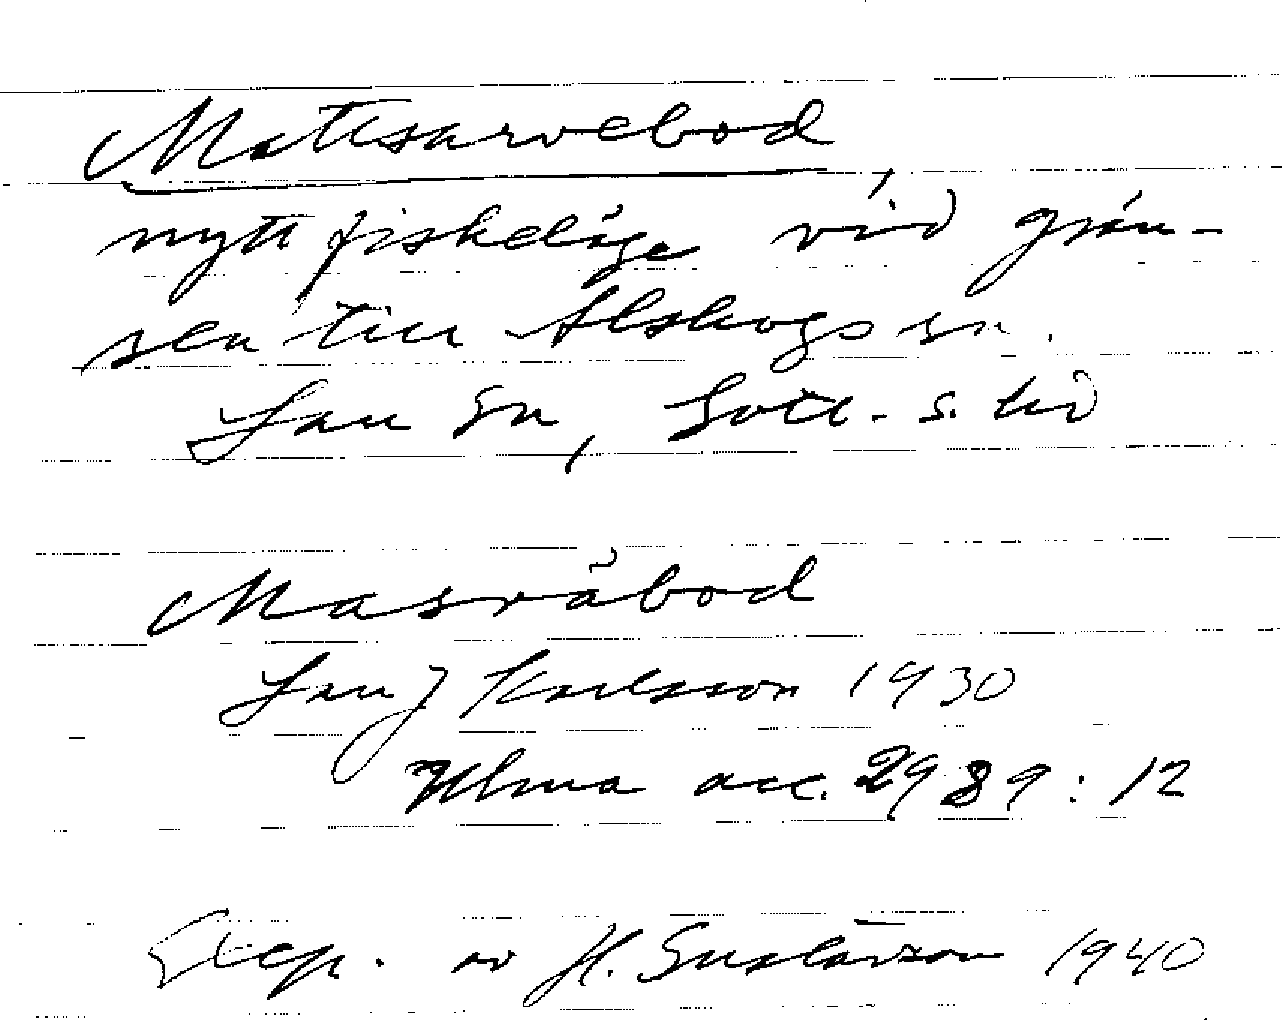 Mattsarvebod,
nytt fiskeläge vid grän-
sen till Alskogs sn.
Lau sn, Gotl. s. hd
Masräbod
Lau J Karlsson 1930
Ulma acc. 2989:12
Excp. av H. Gustavson 1940